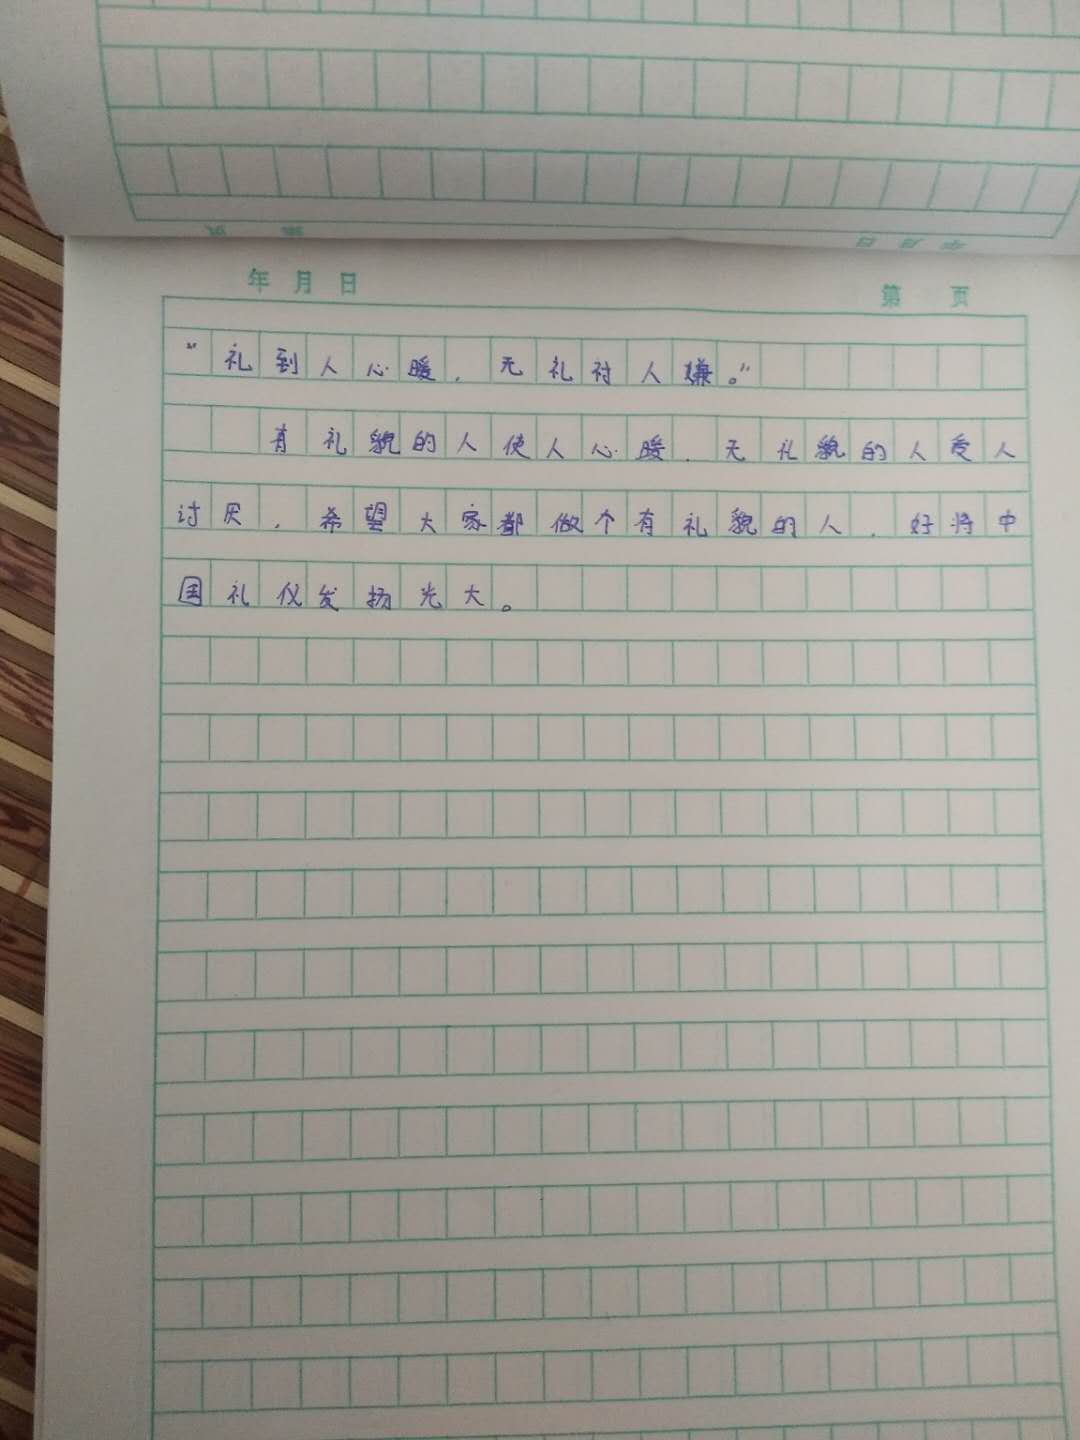 年 月 日
第 页
“礼到人心暖，无礼讨人嫌。”
有礼貌的人使人心暖，无礼貌的人受人
讨厌，希望大家都做个有礼貌的人，好将中
国礼仪发扬光大。